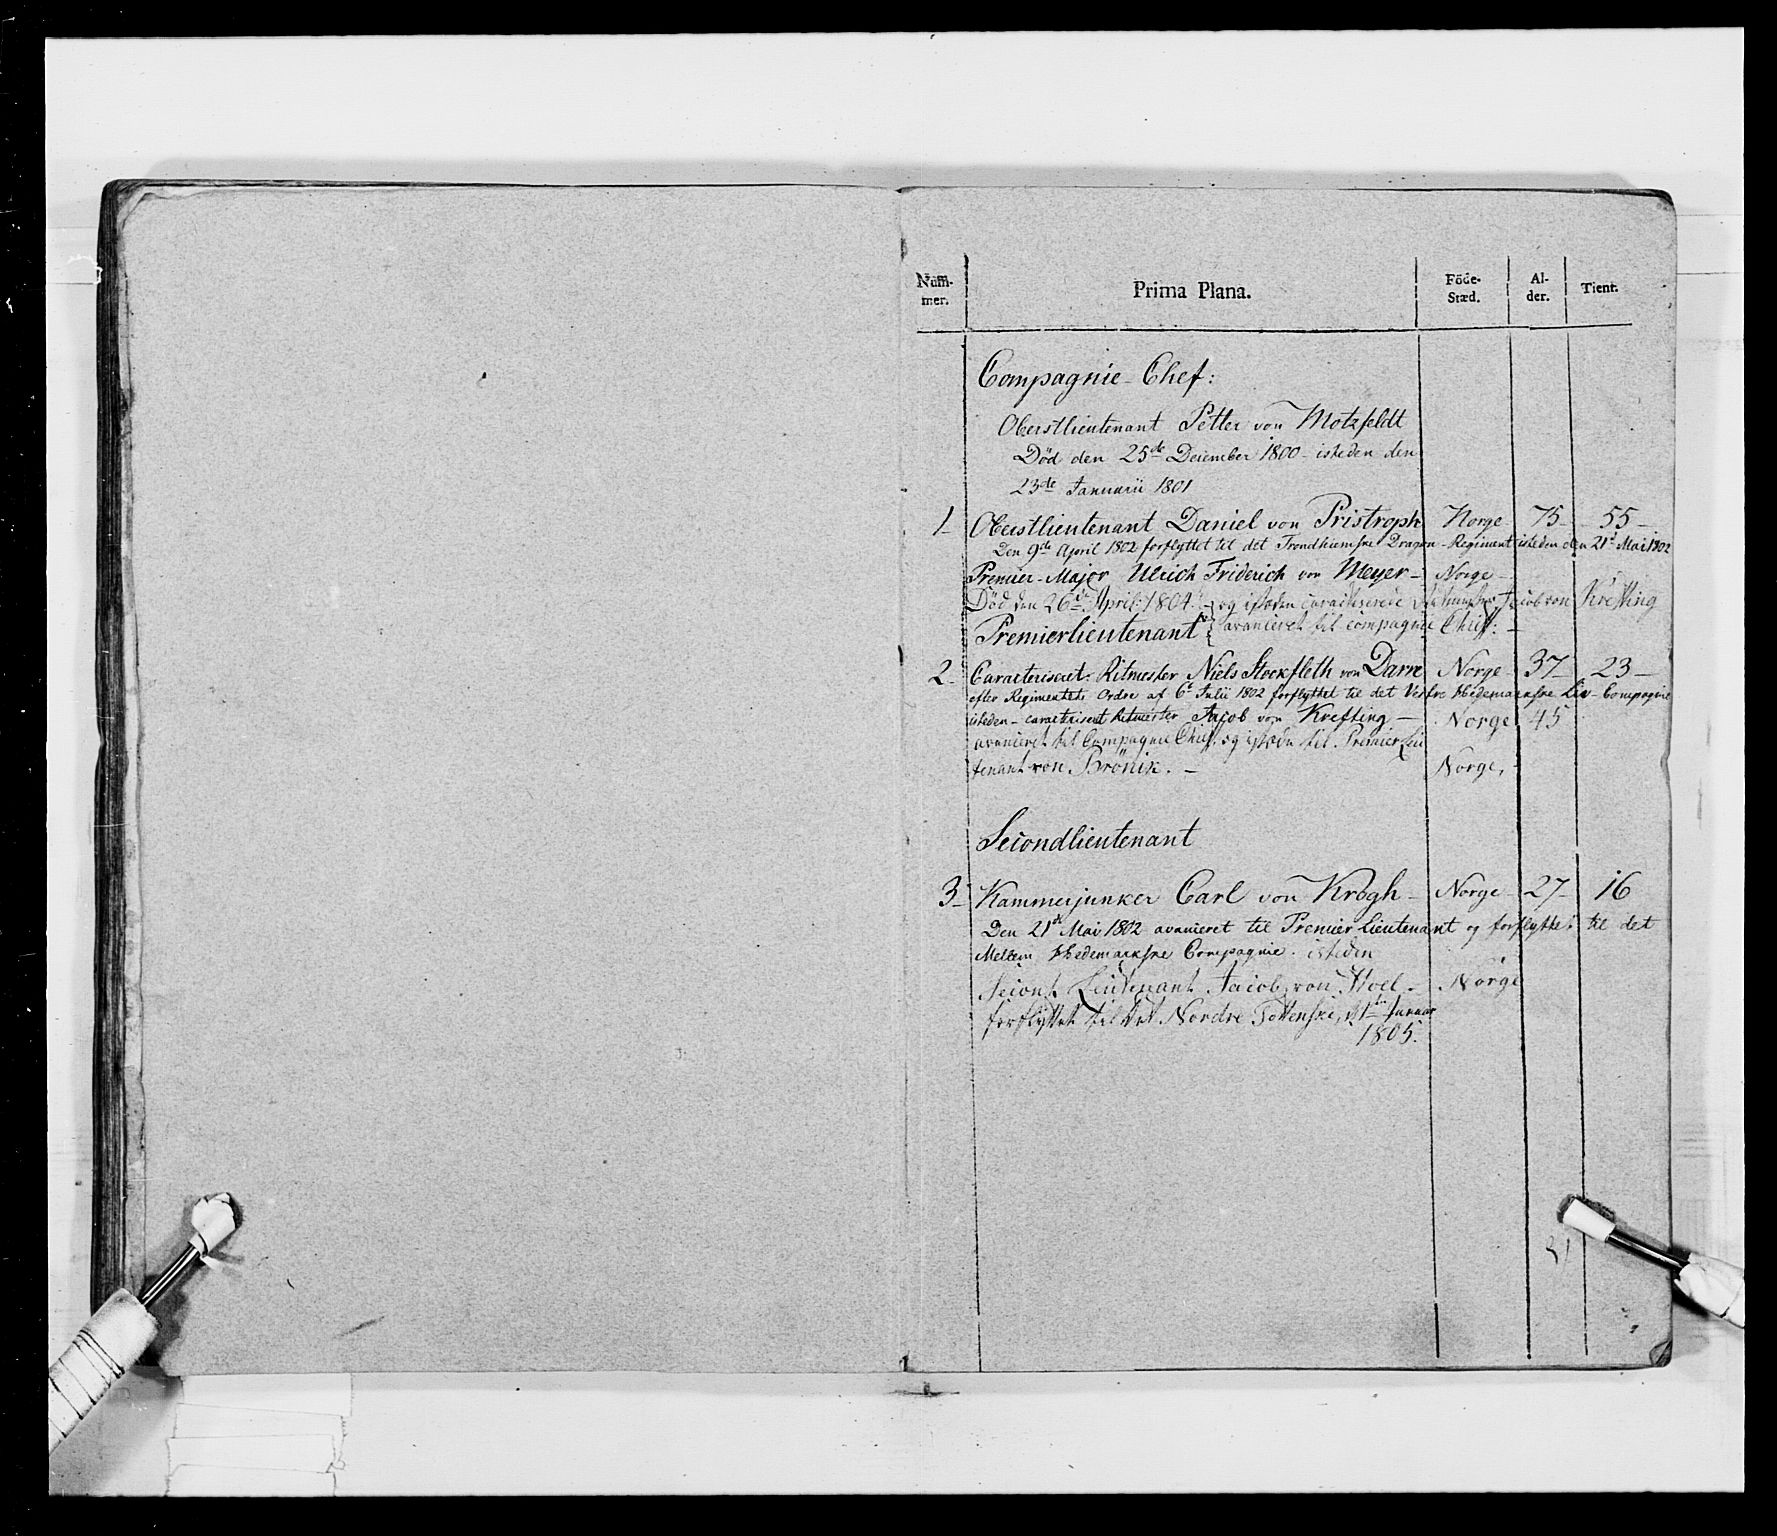 Num-
mer.
Prima Plana.
Föde-
Stæd.
Al-
der.
Tient.
Compagnie Chef:
Oberstlieutenant Petter von Motzfeldt
Död den 25de December 1800 - isteden den
23de Januarii 1801
1 Oberstlieutenant Daniel von Pristroph Norge 75 - 55 -
Den 9de April 1802 forflyttet til det Trondhiemske Dragon-Regiment isteden den 21d Mai 1802
Premier-Major Ulrich Friderich von Meyer - Norge -
Död den 26de April: 1804. og isteden caracterisered Jacob von Krefting
Premierlieutenant avanceret til compagnie Chef: -
2 Caracteriseret: Ritmester Niels Stockfleth von Darre Norge 37 - 23 -
efter Regimentets Ordre af 6t Julii 1802 forflyttet til det Vestre Hedemarkske Liv-Compagnie
isteden - caracteriseret Ritmester Jacob von Krefting - Norge 45
avanceret til Compagnie Chef. og isteden til Premier Lieu
tenant von Brönik. - Norge,
Secondlieutenant
3 - Kammerjunker Carl von Krogh - Norge - 27 - 16
Den 21d Mai 1802 avanceret til Premier Lieutenant og forflyttet til det
Mellem Hedemarkske Compagnie. isteden
Secont Lieutenant Jacob von - Norge
forflyttet til det Nordre Totenske, d. 1te Januar
1805.